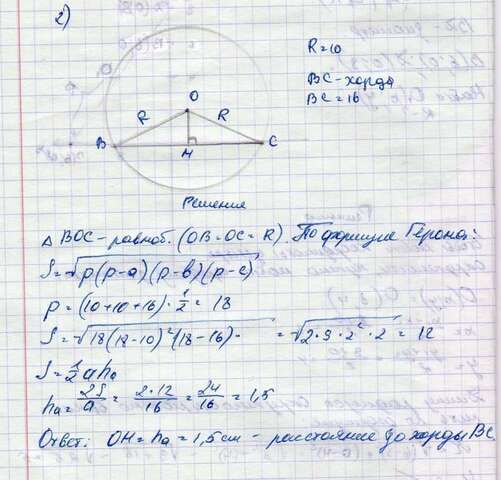 2)
R=10
BC-хорда
BC=16
O
R
R
B
H
C
Решение
△ BOC-равноб. (OB=OC=R). По формуле Герона:
S=√p(p-a)(p-b)(p-c)
p = (10+10+16)·1/2 = 18
S=√18(18-10)²(18-16)· = √2·9·2²·2 = 12
S=1/2 ahₐ
hₐ= 2S/a = 2·12/16 = 24/16 = 1,5
Ответ: OH=hₐ=1,5см - расстояние до хорды BC